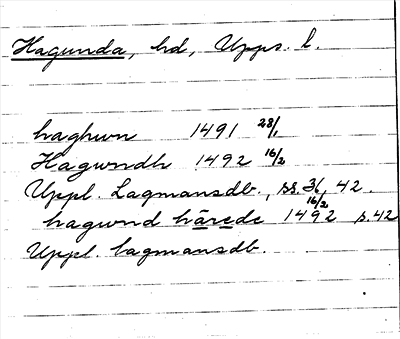 Hagunda, hd, Upps. l.
haghwn 1491 28/1
Hagwndh 1492 16/2
Uppl. Lagmansdb., ss. 36, 42.
hagwnd härede 1492 16/2 s. 42
Uppl. lagmansdb.